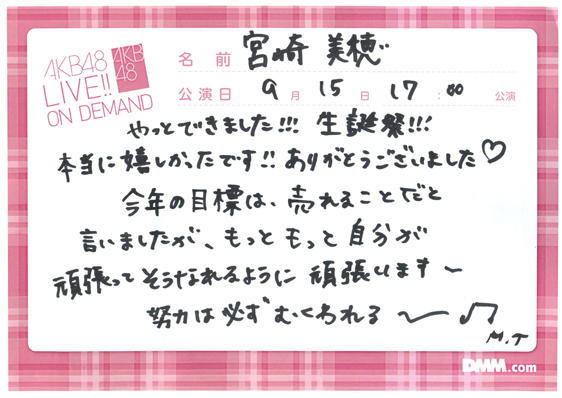 AKB48
LIVE!!
ON DEMAND
AKB
48
名前 宮崎美穂
公演日 9月15日 17:00 公演
やっとできました!!! 生誕祭!!!
本当に嬉しかったです!! ありがとうございました♡
今年の目標は、売れることだと
言いましたが、もっともっと自分が
頑張ってそうなれるように頑張ります〜
努力は必ずむくわれる〜♫
M.T
DMM.com